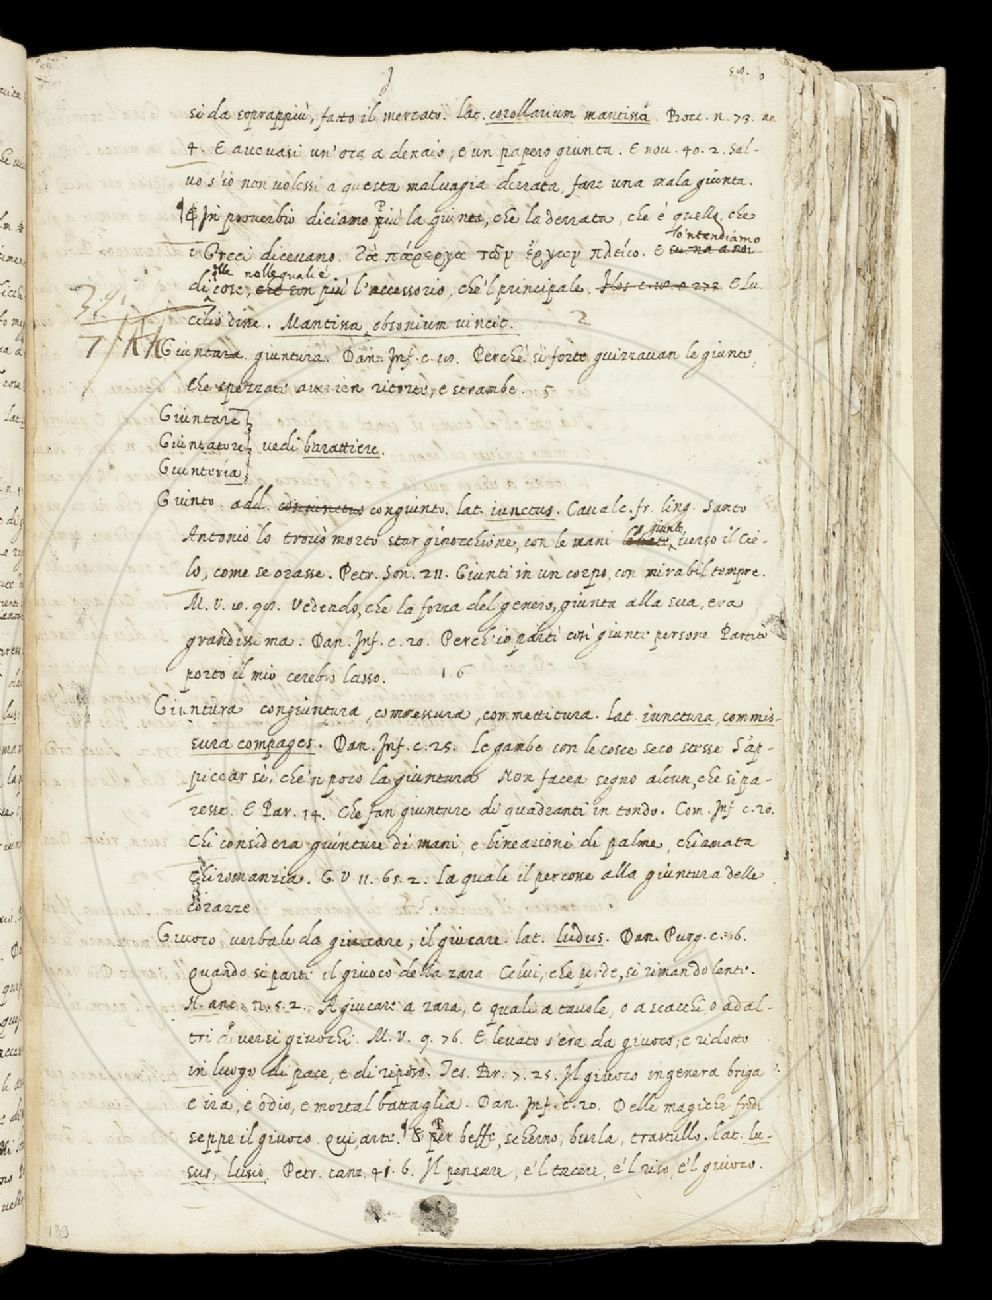 si da soprappiù, fatto il mercato. lat. corollarium mantissa. Bocc. n. 73.
4. E avevasi un'oca a denaio, e un papero giunta. E nov. 40. 2. Sal-
vo s'io non volessi a questa malvagia derrata, fare una mala giunta.
¶ In proverbio diciamo più la giunta, che la derrata, che è quello che
lo'ntendiamo
i Greci dicevano. Τὰ πάρεργα τῶν ἔργων πλείω. E
elle nelle quali è
di cose, più l'accessorio, che'l principale. E Lu
cilio dise. Mantissa obsonium vincit. 2
Giuntura giuntura. Dan. Inf. c. 19. Perchè sì forte guizzavan le giunte,
Che spezzate avrien ritorte, e strambe. 5
Giuntare
Giuntatore vedi barattiere.
Giunteria
Giunto. add. congiunto. lat. iunctus. Cavalc. fr. ling. Santo
giunte
Antonio lo trovò morto star ginocchione, con le mani verso il Cie-
lo, come se orasse. Petr. Son. 211. Giunti in un corpo, con mirabil tempre.
M. V. 10. 98. Vedendo, che la forza del genero, giunta alla sua, era
grandissima. Dan. Inf. c. 20. Perch'io partì così giunte persone Partito
porto il mio cerebro lasso. 16
Giuntura congiuntura, commessura, commettitura. lat. iunctura, commis-
sura compages. Dan. Inf. c. 25. Le gambe con le cosce seco stesse S'ap-
piccar sì, che'n poco la giuntura Non facea segno alcun, che si pa-
resse. E Par. 14. Che fan giunture di quadranti in tondo. Com. Inf c. 20.
Chi considera giunture di mani, e lineazioni di palme, chiamata
chiromanzia. G. V. 11. 65. 2. La quale il percosse alla giuntura delle
corazze
Giuoco verbale da giucare, il giucare. lat. ludus. Dan. Purg. c. 6.
Quando si parte il giuoco della zara Colui, che perde, si riman dolente.
N. ant. n. 5. 2. A giucare a zara, e quali a tavole, o a scacchi o ad al-
tri diversi giuochi. M. V. 9. 76. E levato s'era da giuoco, e ridotto
in luogo di pace, e di riposo. Tes. Br. 7. 25. Il giuoco ingenera briga
e ira, e odio, e mortal battaglia. Dan. Inf. c. 20. Delle magiche frodi
seppe il giuoco. qui, arte. ¶ E per beffe, scherno, burla, trastullo. lat. lu-
sus, lusio. Petr. canz. 41. 6. Il pensare, e'l tacere, e'l riso, e'l giuoco.
139